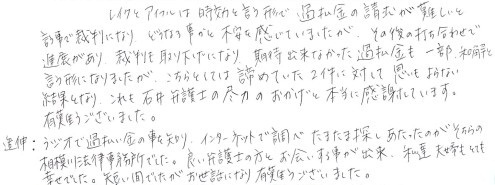 レイクとアイフルは時効と言う形で過払金の請求が難しいと
記事で裁判になり どうなる事かと不安を感じていましたが、その後の打ち合わせで
進展があり、裁判も取り下げになり 期待出来なかった過払金も一部、和解と
言う形になりましたが、こちらとしては諦めていた2件に対して思いもよらない
結果となり、これも石井弁護士の尽力のおかげと本当に感謝しています。
有難うございました。
追伸:ラジオで過払い金の事を知り、インターネットで調べたまたま探しあたったのがそちらの
相模川法律事務所でした。良い弁護士の方とお会いする事が出来、私達夫婦もとても
幸せでした。短い間でしたがお世話になり有難うございました。